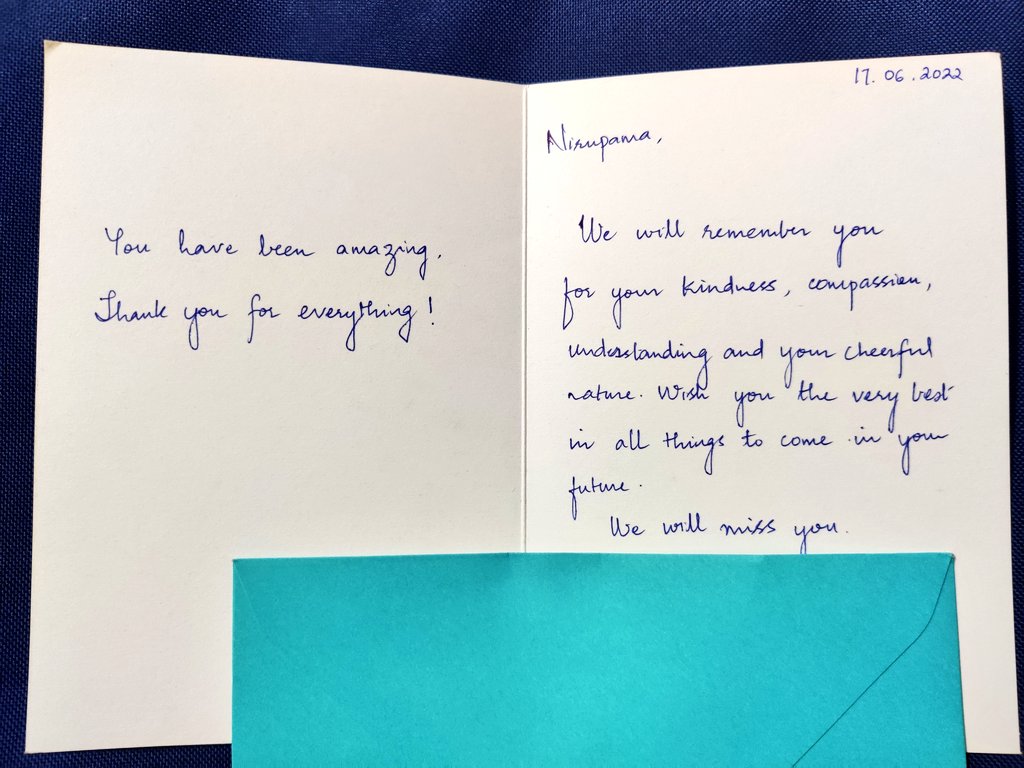 You have been amazing.
Thank you for everything!
17.06.2022
Nirupama,
We will remember you
for your kindness, compassion,
understanding and your cheerful
nature. Wish you the very best
in all things to come in your
future.
We will miss you.